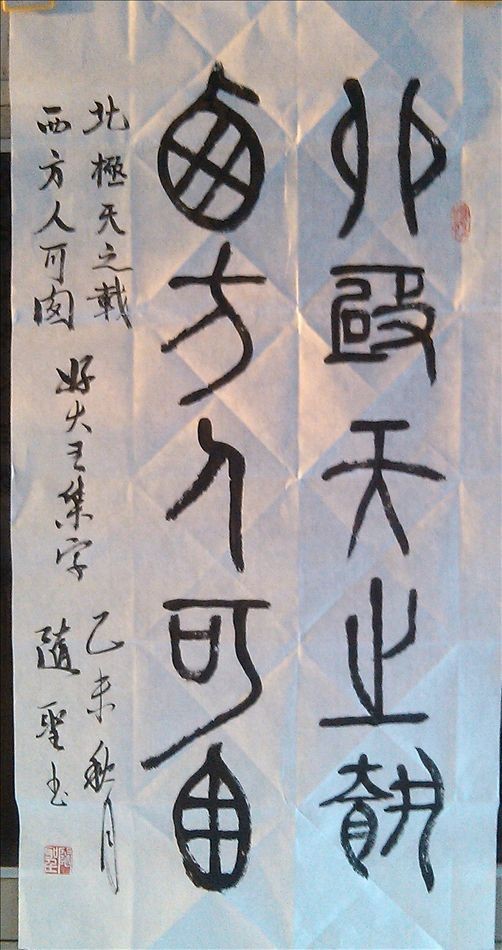 北極天之載
西方人可
北極天之載
西方人可
好大王集字
乙未秋月
隨聖书